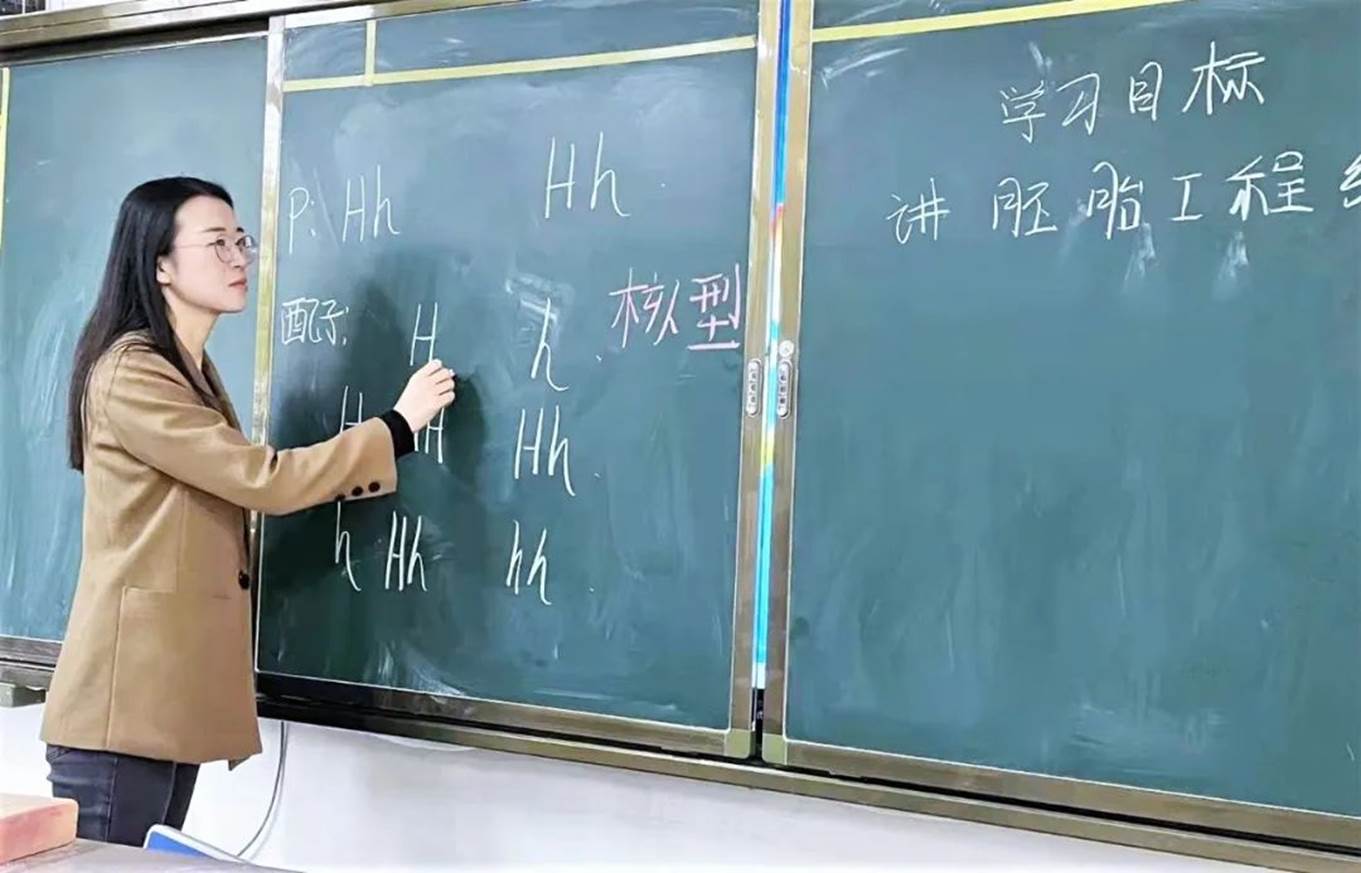 P: Hh Hh
配子: H h 核型
H HH Hh
h Hh hh
学习目标
讲 胚胎工程